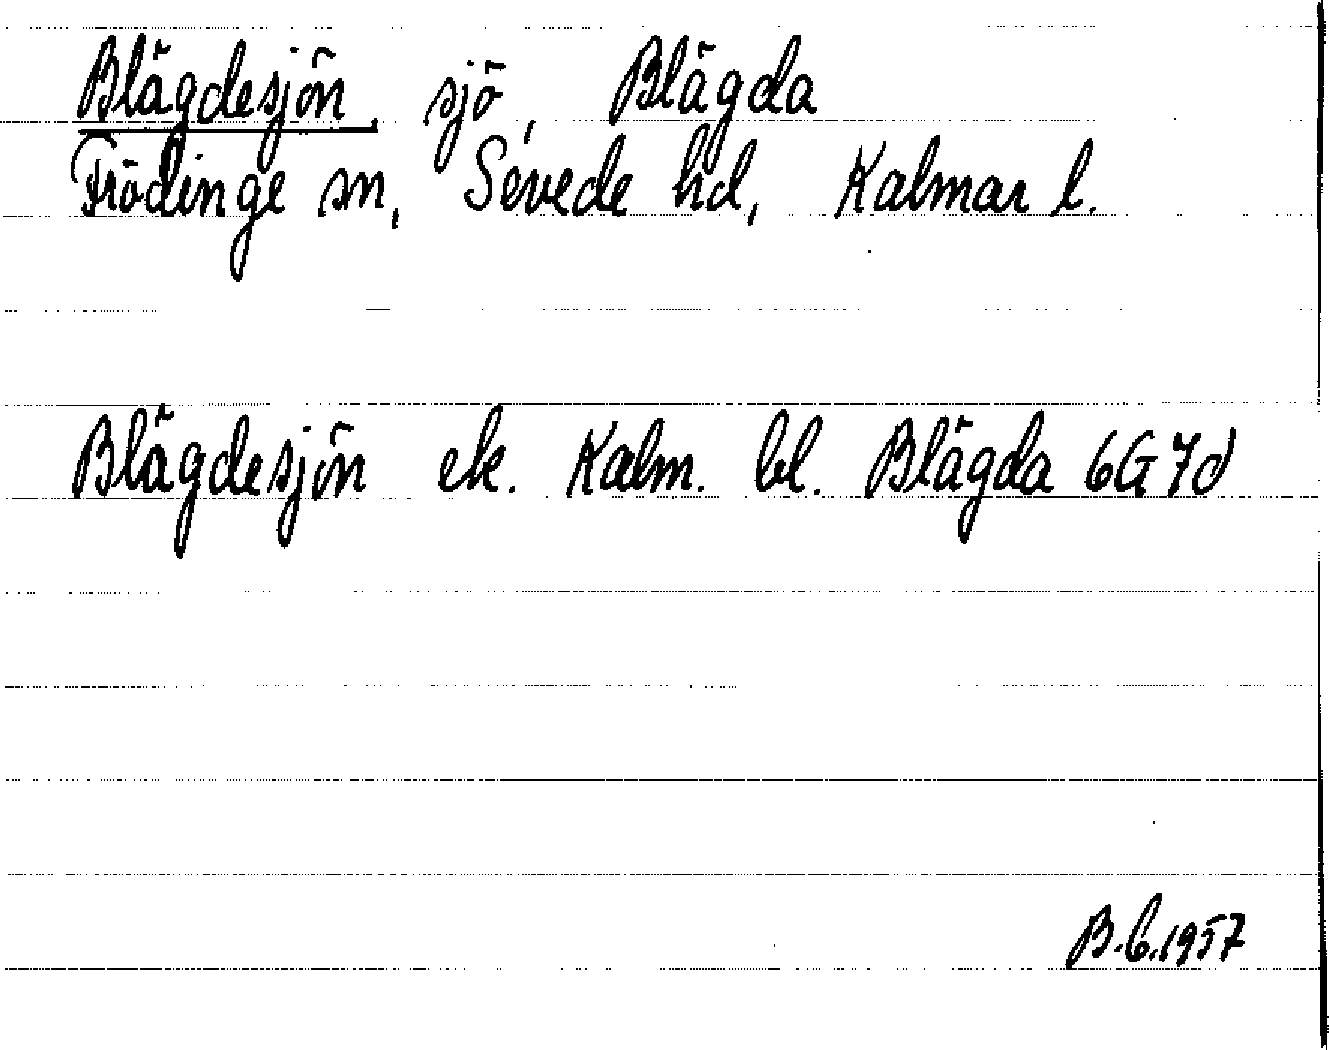 Blägdesjön, sjö, Blägda
Frödinge sn, Sevede hd, Kalmar l.
Blägdesjön ek. Kalm. bl. Blägda 6G7d
B.C.1957